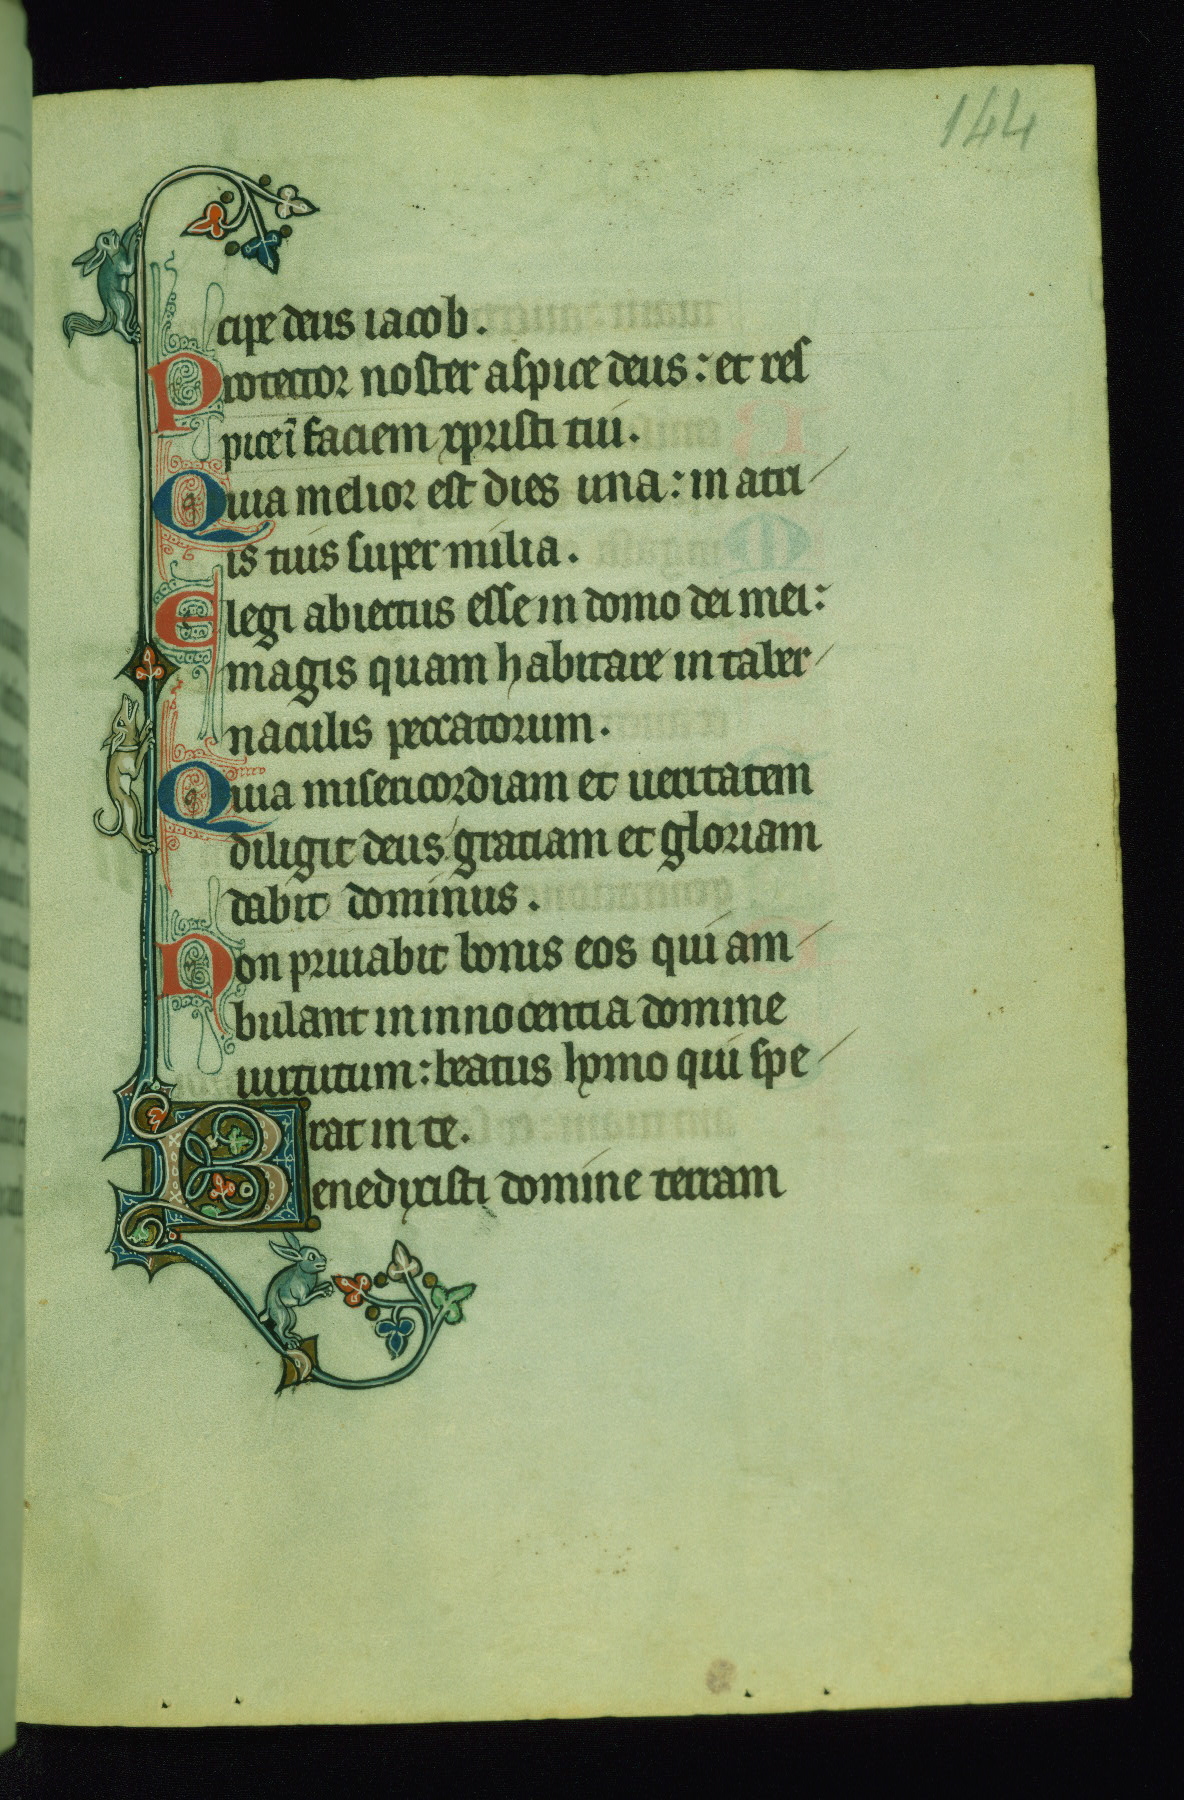 144
cipe deus iacob.
Protector noster aspice deus: et res
pice ī faciem xpristi tui.
Quia melior est dies una: in atri
is tuis super milia.
Elegi abiectus esse in domo dei mei:
magis quam habitare in taber
naculis peccatorum.
Quia misericordiam et ueritatem
diligit deus gratiam et gloriam
dabit dominus.
Non priuabit bonis eos qui am
bulant in innocentia domine
uirtutum: beatus homo qui spe
rat in te.
Benedixisti domine terram